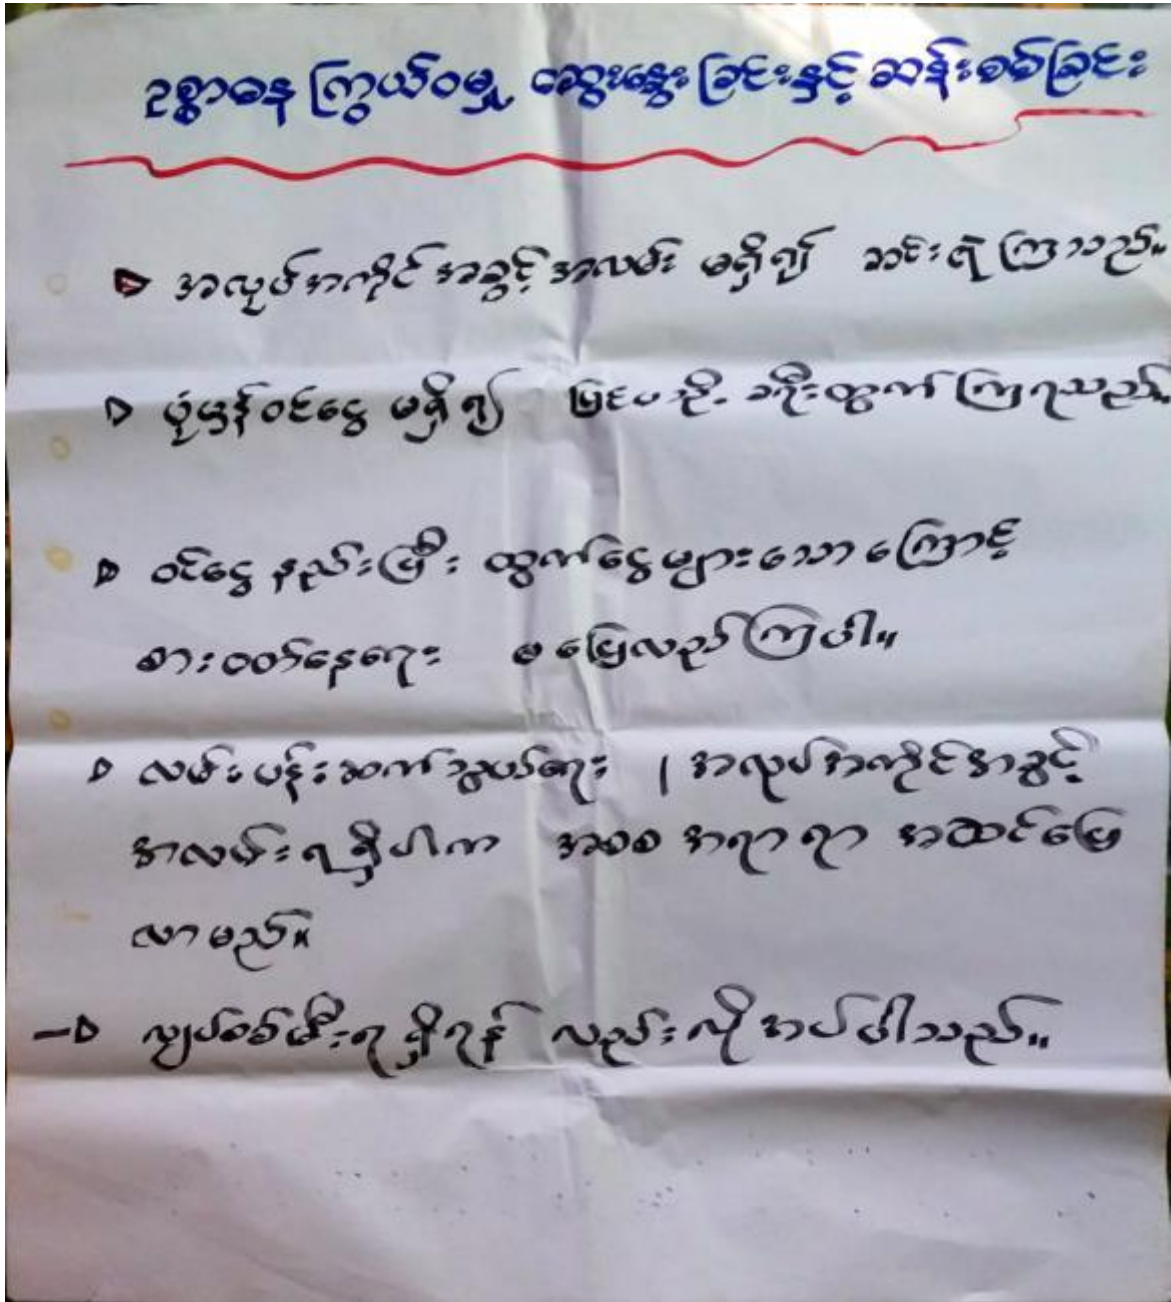 ဥစ္စာဓန ကြွယ်ဝမှု ဆွေးနွေးခြင်းနှင့် ဆန်းစစ်ခြင်း
အလုပ်အကိုင် အခွင့် အလမ်း မရှိ၍ ဆင်းရဲကြသည်။
ပုံမှန်ဝင်ငွေ မရှိ၍ မြင်ပသို့ ခရီးထွက်ကြရသည်။
ဝင်ငွေ နည်းပြီး ထွက်ငွေများသောကြောင့်
စားဝတ်နေရေး မပြေလည်ကြပါ။
လမ်းပန်းဆက်သွယ်ရေး ၊ အလုပ်အကိုင်အခွင့်
အလမ်းရရှိပါက အစစ အရာရာ အဆင်ပြေ
လာမည်။
လျှပ်စစ်မီးရရှိရန် လည်းလိုအပ်ပါသည်။